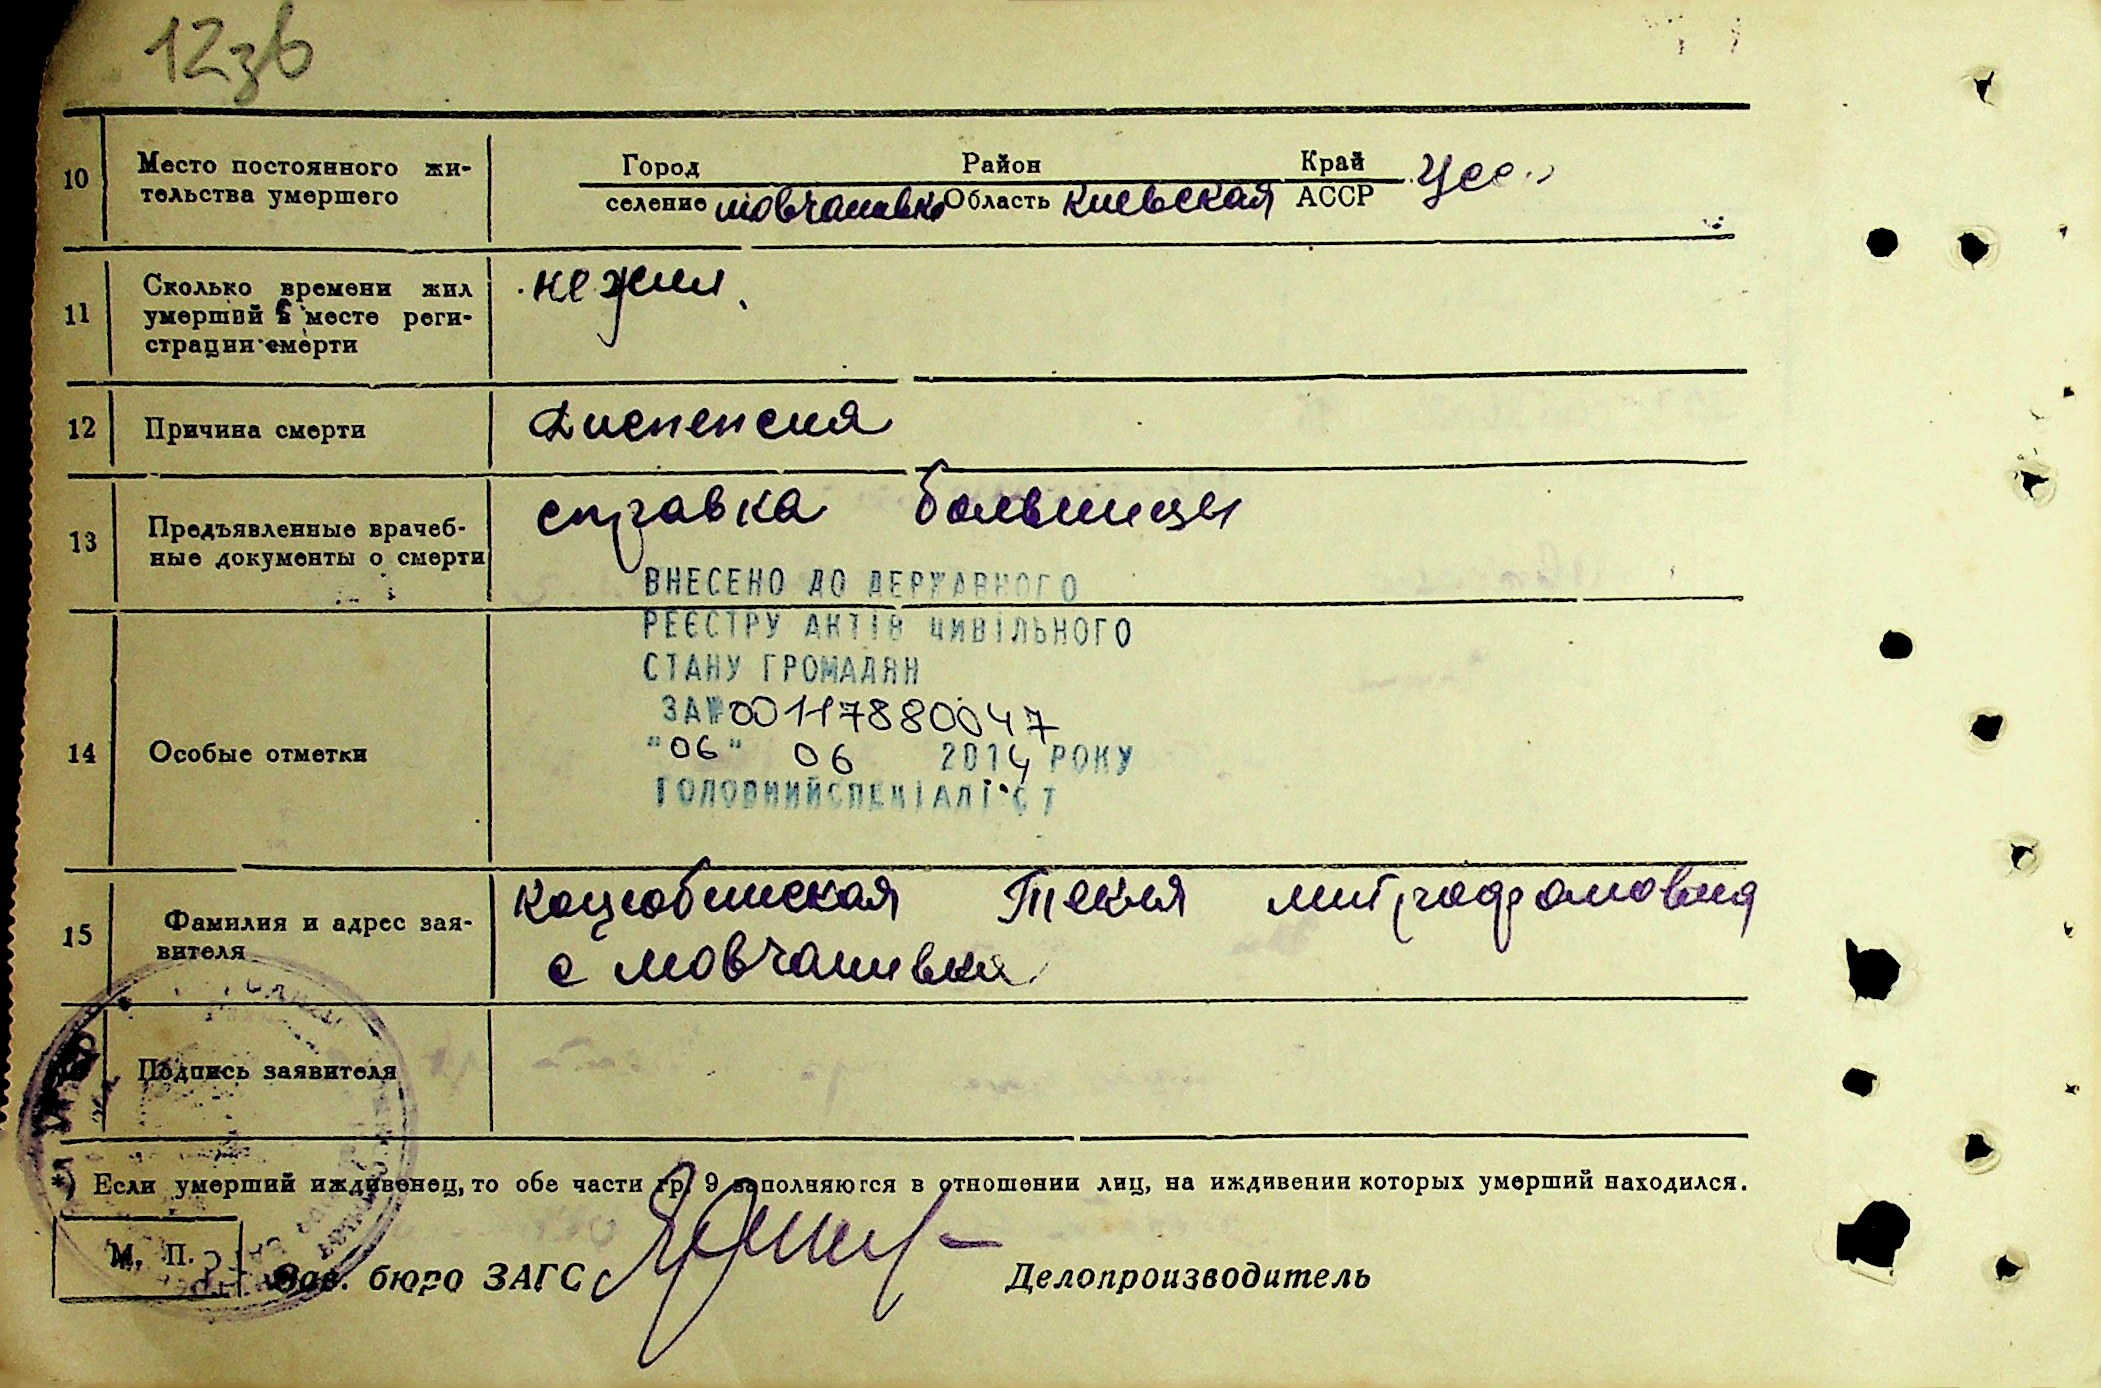 12зв
10 Место постоянного жи-
тельства умершего
Город Район Край
селение Мовчановка Область Киевская АССР УССР
11 Сколько времени жил
умерший в месте реги-
страции смерти
не жил
12 Причина смерти Диспепсия
13 Предъявленные врачеб-
ные документы о смерти
справка больницы
ВНЕСЕНО ДО ДЕРЖАВНОГО
РЕЄСТРУ АКТІВ ЦИВІЛЬНОГО
СТАНУ ГРОМАДЯН
ЗА№00117880047
14 Особые отметки
"06" 06 2014 РОКУ
ГОЛОВНИЙ СПЕЦІАЛІСТ
15 Фамилия и адрес зая-
вителя
Коцюбинская Текля Митрофановна
с Мовчановка
Подпись заявителя
*) Если умерший иждивенец, то обе части гр. 9 заполняются в отношении лиц, на иждивении которых умерший находился.
М. П.
Зав. бюро ЗАГС Делопроизводитель